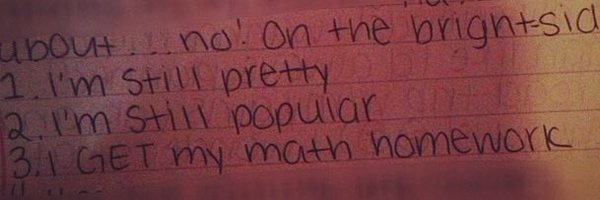 about....no! On the bright sid
1. I'm still pretty
2. I'm still popular
3. I GET my math homework